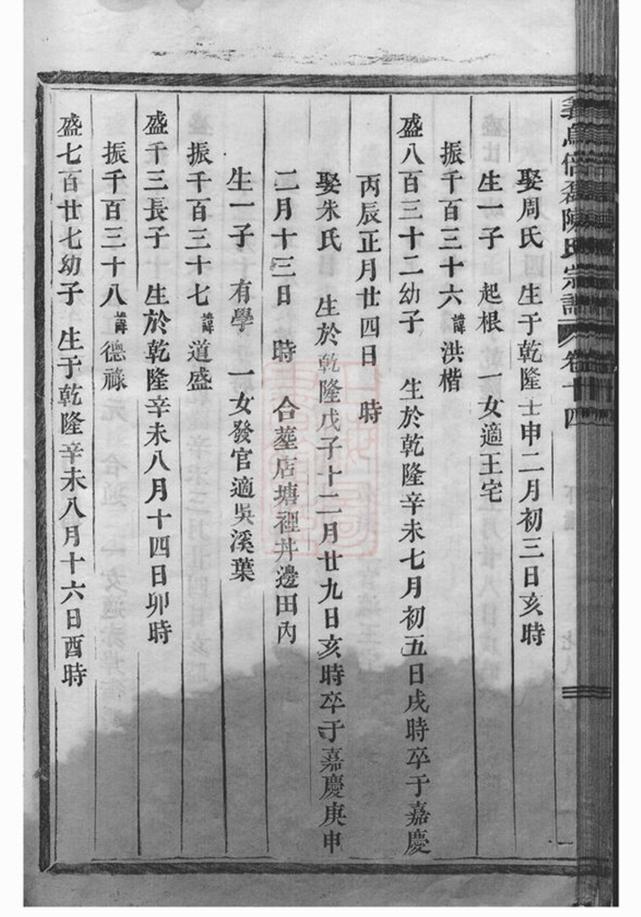 義烏倍磊陳氏宗譜 卷十四
娶周氏 生于乾隆壬申二月初三日亥時
生一子 起根 一女適王宅
振千百三十六 諱洪楷
盛八百三十二幼子 生於乾隆辛未七月初五日戌時卒于嘉慶
丙辰正月廿四日 時
娶朱氏 生於乾隆戊子十二月廿九日亥時卒于嘉慶庚申
二月十三日 時 合塟店塘裡丼邊田內
生一子 有學 一女發官適吳溪葉
振千百三十七 諱道盛
盛千三長子 生於乾隆辛未八月十四日卯時
振千百三十八 諱德祿
盛七百廿七幼子 生于乾隆辛未八月十六日酉時